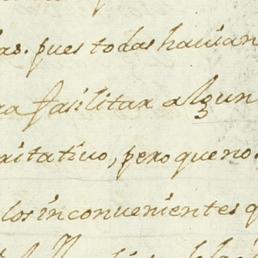 las. pues todas havian
ra fasilitar algun
ritativo, pero que no
los inconvenientes q